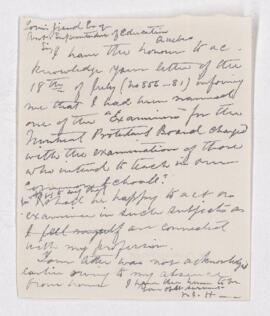 Louis Giard Esq
Superintendent of Education
Quebec
Sir
I have the honour to ac-
knowledge your letter of the
18th of July (no 555-81) informing
me that I had been named
one of the "Examiners for the
Montreal Protestant Board charged
with the examination of those
who intend to teach in
Schools."
I shall be happy to act as
examiner in such subjects as
I feel myself are connected
with my profession.
Your letter was not acknowledged
earlier owing to my absence
from home I have the honour to be
Your obt servant